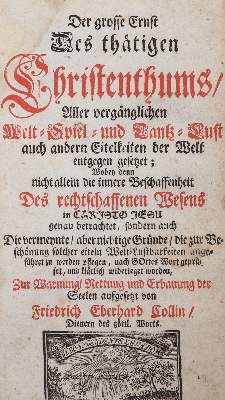 Der grosse Ernst
Des thätigen
Christenthums/
Aller vergänglichen
Welt-Spiel- und Tantz-Lust
auch andern Eitelkeiten der Welt
entgegen gesetzet;
Wobey denn
nicht allein die innere Beschaffenheit
Des rechtschaffenen Wesens
in CHRISTO JESU
genau betrachtet, sondern auch
Die vermeynte/ aber nichtige Gründe/ die zur Be-
schönung solcher eiteln Welt-Lustbarkeiten ange-
führet zu werden pflegen, nach GOttes Wort geprü-
fet, und klärlich widerleget worden,
Zur Warnung/ Rettung und Erbauung der
Seelen aufgesetzt von
Friedrich Eberhard Collin/
Dienern des göttl. Worts.